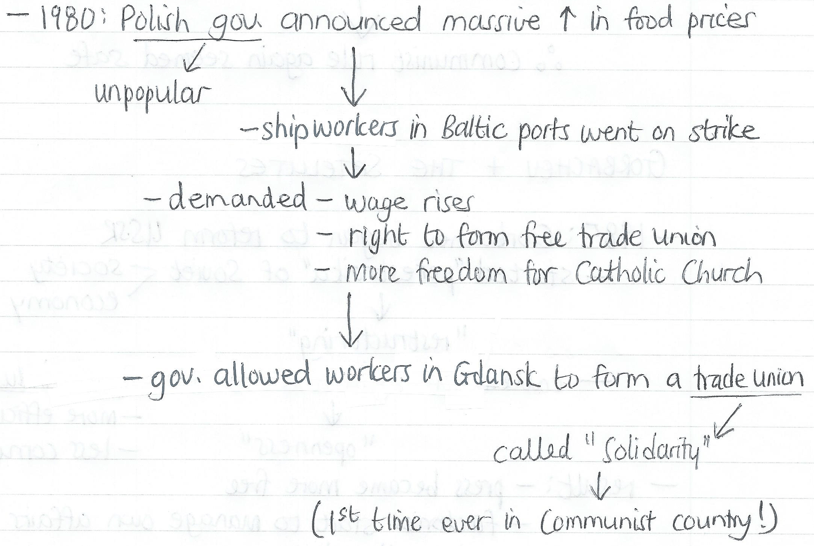 - 1980: Polish gov. announced massive ↑ in food prices
unpopular
- shipworkers in Baltic ports went on strike
- demanded - wage rises
- right to form free trade union
- more freedom for Catholic Church
- gov. allowed workers in Gdansk to form a trade union
called "Solidarity"
(1st time ever in Communist country!)